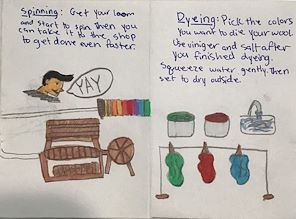 Spinning: Get your loom
and start to spin then you
can take it to the shop
to get done even faster.
YAY
Dyeing: Pick the colors
You want to die your wool.
Use viniger and salt after
you finished dyeing.
Squeeze water gently. Then
set to dry outside.